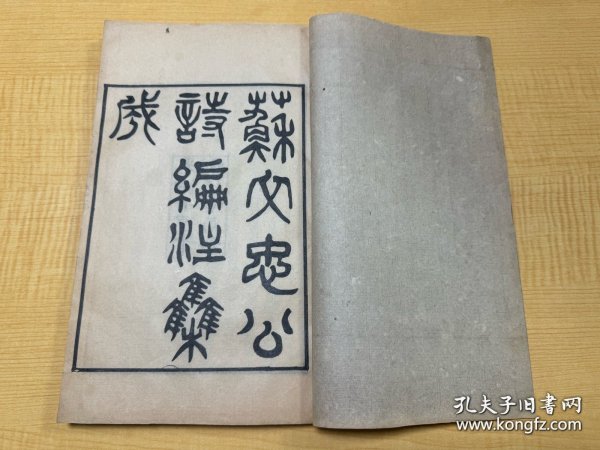 蘇文忠公
詩編注集
成
孔夫子旧书网
www.kongfz.com